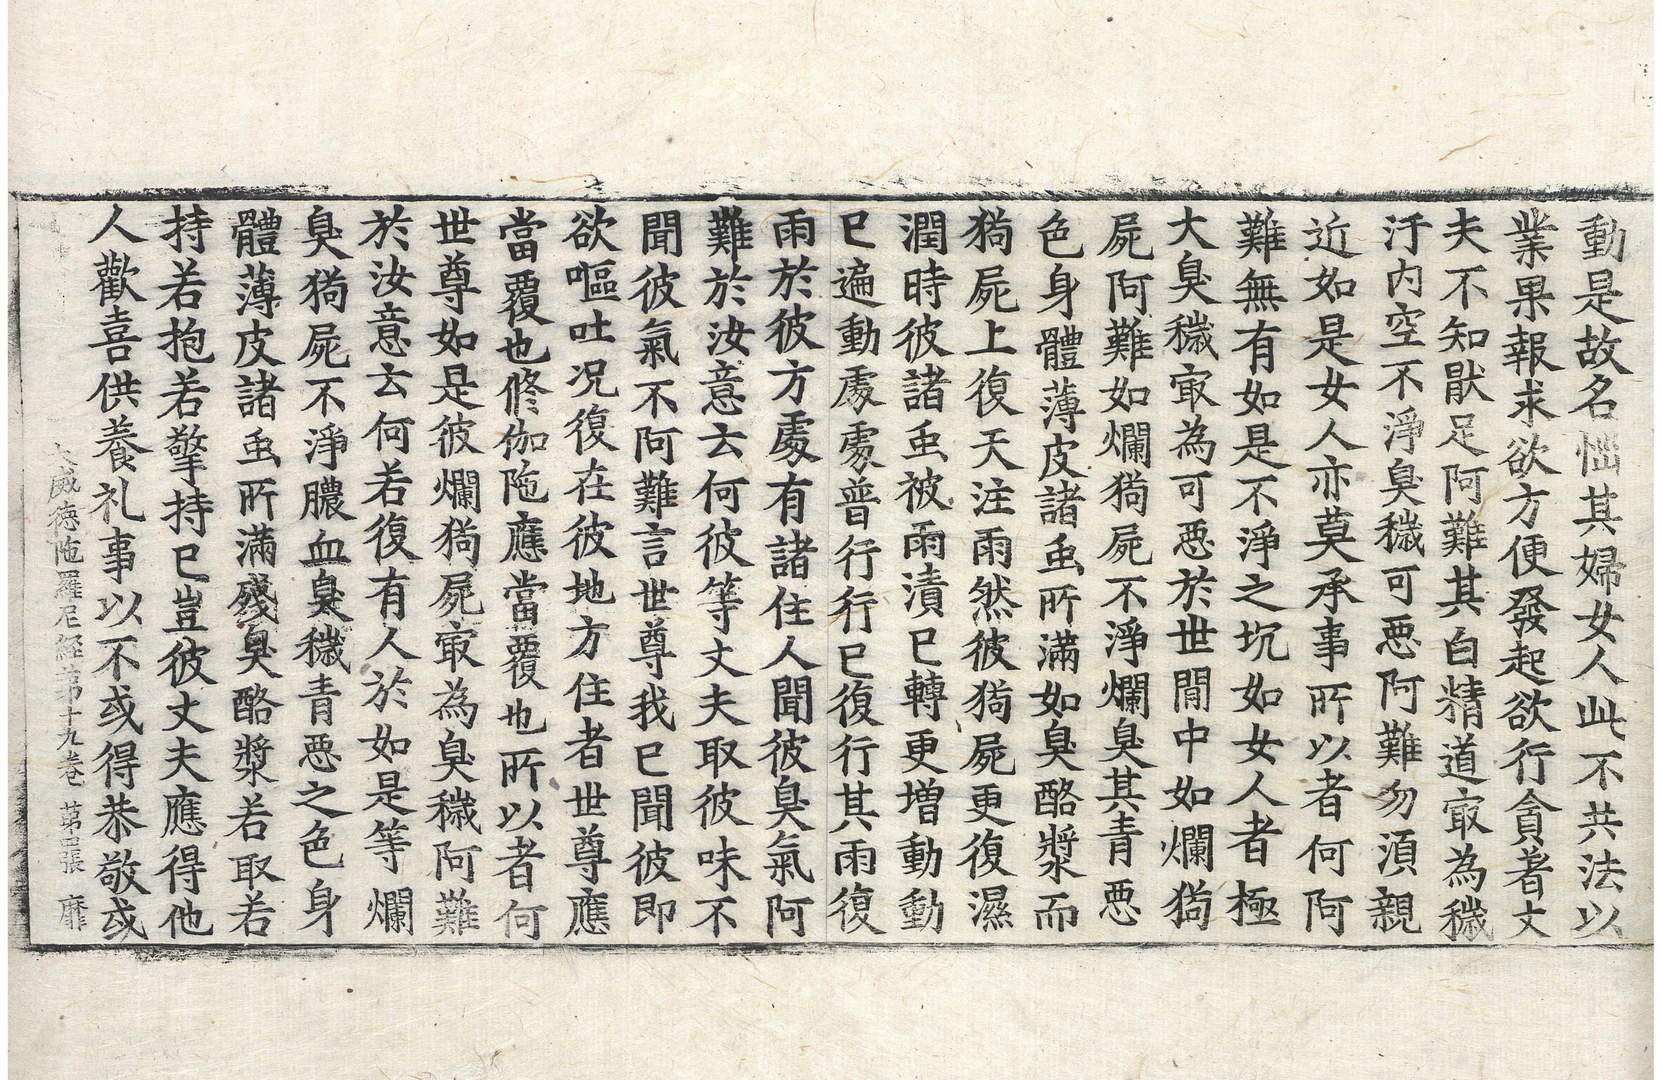 動是故名惱其婦女人此不共法以
業果報求欲方便發起欲行貪著丈
夫不知猒足阿難其白精道㝡為穢
汙内空不淨臭穢可惡阿難勿湏親
近如是女人亦莫承事所以者何阿
難無有如是不淨之坑如女人者極
大臭穢㝡為可惡於世間中如爛狗
屍阿難如爛狗屍不淨爛臭其青惡
色身體薄皮諸䖝所滿如臭酪漿而
狗屍上復天注雨然彼狗屍更復濕
潤時彼諸䖝被雨漬已轉更增動動
已遍動處處普行行已復行其雨復
雨於彼方處有諸住人聞彼臭氣阿
難於汝意云何彼等丈夫取彼味不
聞彼氣不阿難言世尊我已聞彼即
欲嘔吐况復在彼地方住者世尊應
當覆也修伽陁應當覆也所以者何
世尊如是彼爛狗屍㝡為臭穢阿難
於汝意云何若復有人於如是等爛
臭狗屍不淨膿血臭穢青惡之色身
體薄皮諸䖝所滿殘臭酪漿若取若
持若抱若擎持已豈彼丈夫應得他
人歡喜供養礼事以不或得恭敬或
大威德陁羅尼經第十九卷 第四張 靡